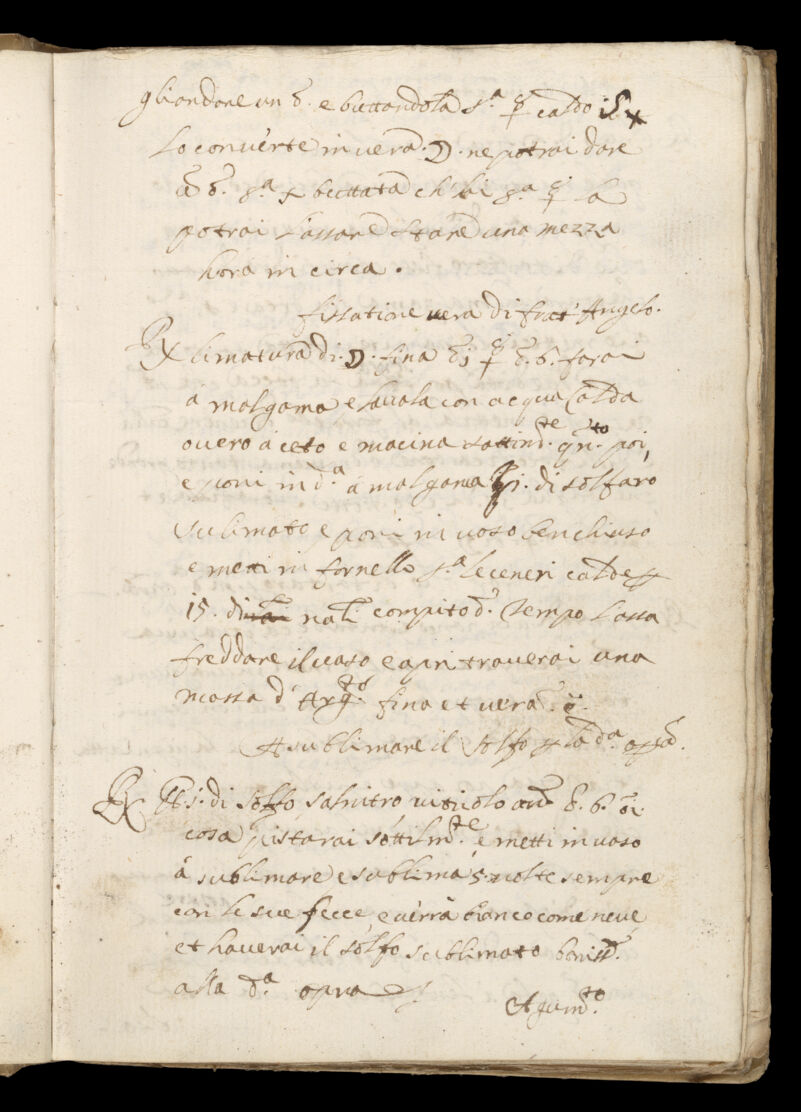 gliandone un ʒ. e buttandola s.ª ☿ caldo
lo converte in vera ☽. ne potrai dare
buttata ch' l'hai s.ª ☿ la
potrai lassare stare una mezza
hora in circa.
fissatione vera di frat' Angelo.
℞ limatura di ☽. fina ʒj ☿ ʒ. 6. farai
a malgama e lavala con acqua calda
overo aceto e macina sottilm.te q.n.to poi,
e poni in d.ª a malgama di solfaro
sublimato e poni in vaso ben chiuso
e metti in fornello s.ª le ceneri calde
15. nali compito d. tempo lassa
freddare il vaso e apri troverai una
massa d' Arg.to fina et vera
A sublimare il solfo p la d.ª opra.
℞ di solfo salnitro vitriolo an ʒ. 6. oi
cosa pistarai sottilm.te e metti in vaso
à sublimare e sublima 5 volte sempre
con le sue fecce e verrà bianco come neve
et haverai il solfo sublimato boniss.
alla d.ª opra
Agum.to